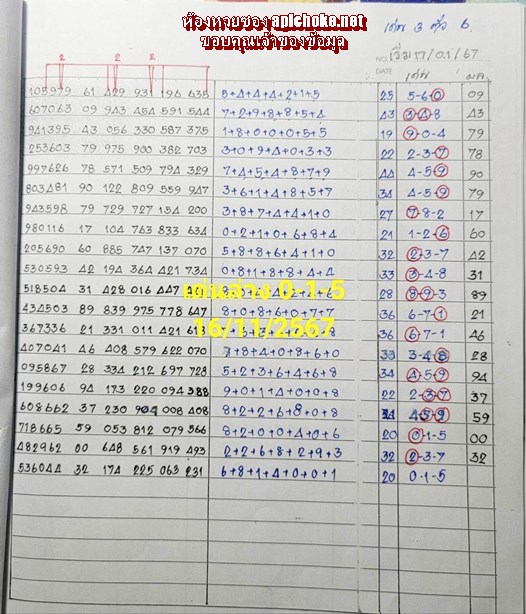 ห้องหวยซอง aplchoke.net
ขอบคุณเจ้าของข้อมูล
เด่น 3 ตัว ษ.
NO. เริ่ม 17/01/67
DATE เด่น ผล
2 2 2
105979 61 429 931 196 635 5+4+4+4+2+1+5 25 5-6-0 09
607063 09 943 454 591 544 7+2+9+8+8+5+4 43 3-4-8 43
941395 43 056 330 587 375 1+8+0+0+0+5+5 19 9-0-4 79
253603 79 975 900 382 703 3+0+9+4+0+3+3 22 2-3-7 78
997626 78 571 509 794 329 7+4+5+4+8+7+9 44 4-5-9 90
803481 90 122 809 559 947 3+6+1+4+8+5+7 34 4-5-9 79
943598 79 729 727 154 200 3+8+7+4+4+1+0 27 7-8-2 17
980116 17 104 763 833 634 0+2+1+0+6+8+4 21 1-2-6 60
205690 60 885 747 137 070 5+8+8+6+4+1+0 32 2-3-7 42
530593 42 194 364 421 734 0+8+1+8+8+4+4 33 3-4-8 31
518504 31 428 016 447 28 8-9-3 89
434503 89 839 975 778 647 8+0+8+6+0+7+7 36 6-7-1 21
367336 21 331 011 421 36 6-7-1 46
407041 46 408 579 622 070 7+8+4+0+8+6+0 33 3-4-8 28
095867 28 334 212 697 728 5+2+3+6+4+6+8 34 4-5-9 94
199606 94 173 220 094 388 9+0+1+4+0+0+8 22 2-3-7 37
608662 37 230 904 008 408 8+2+2+6+8+0+8 34 4-5-9 59
718665 59 053 812 079 566 8+2+0+0+4+0+6 20 0-1-5 00
482962 00 648 561 919 493 2+2+6+8+2+9+3 32 2-3-7 32
536044 32 174 225 063 231 6+8+1+4+0+0+1 20 0-1-5
เด่นล่าง 0-1-5
16/11/2567